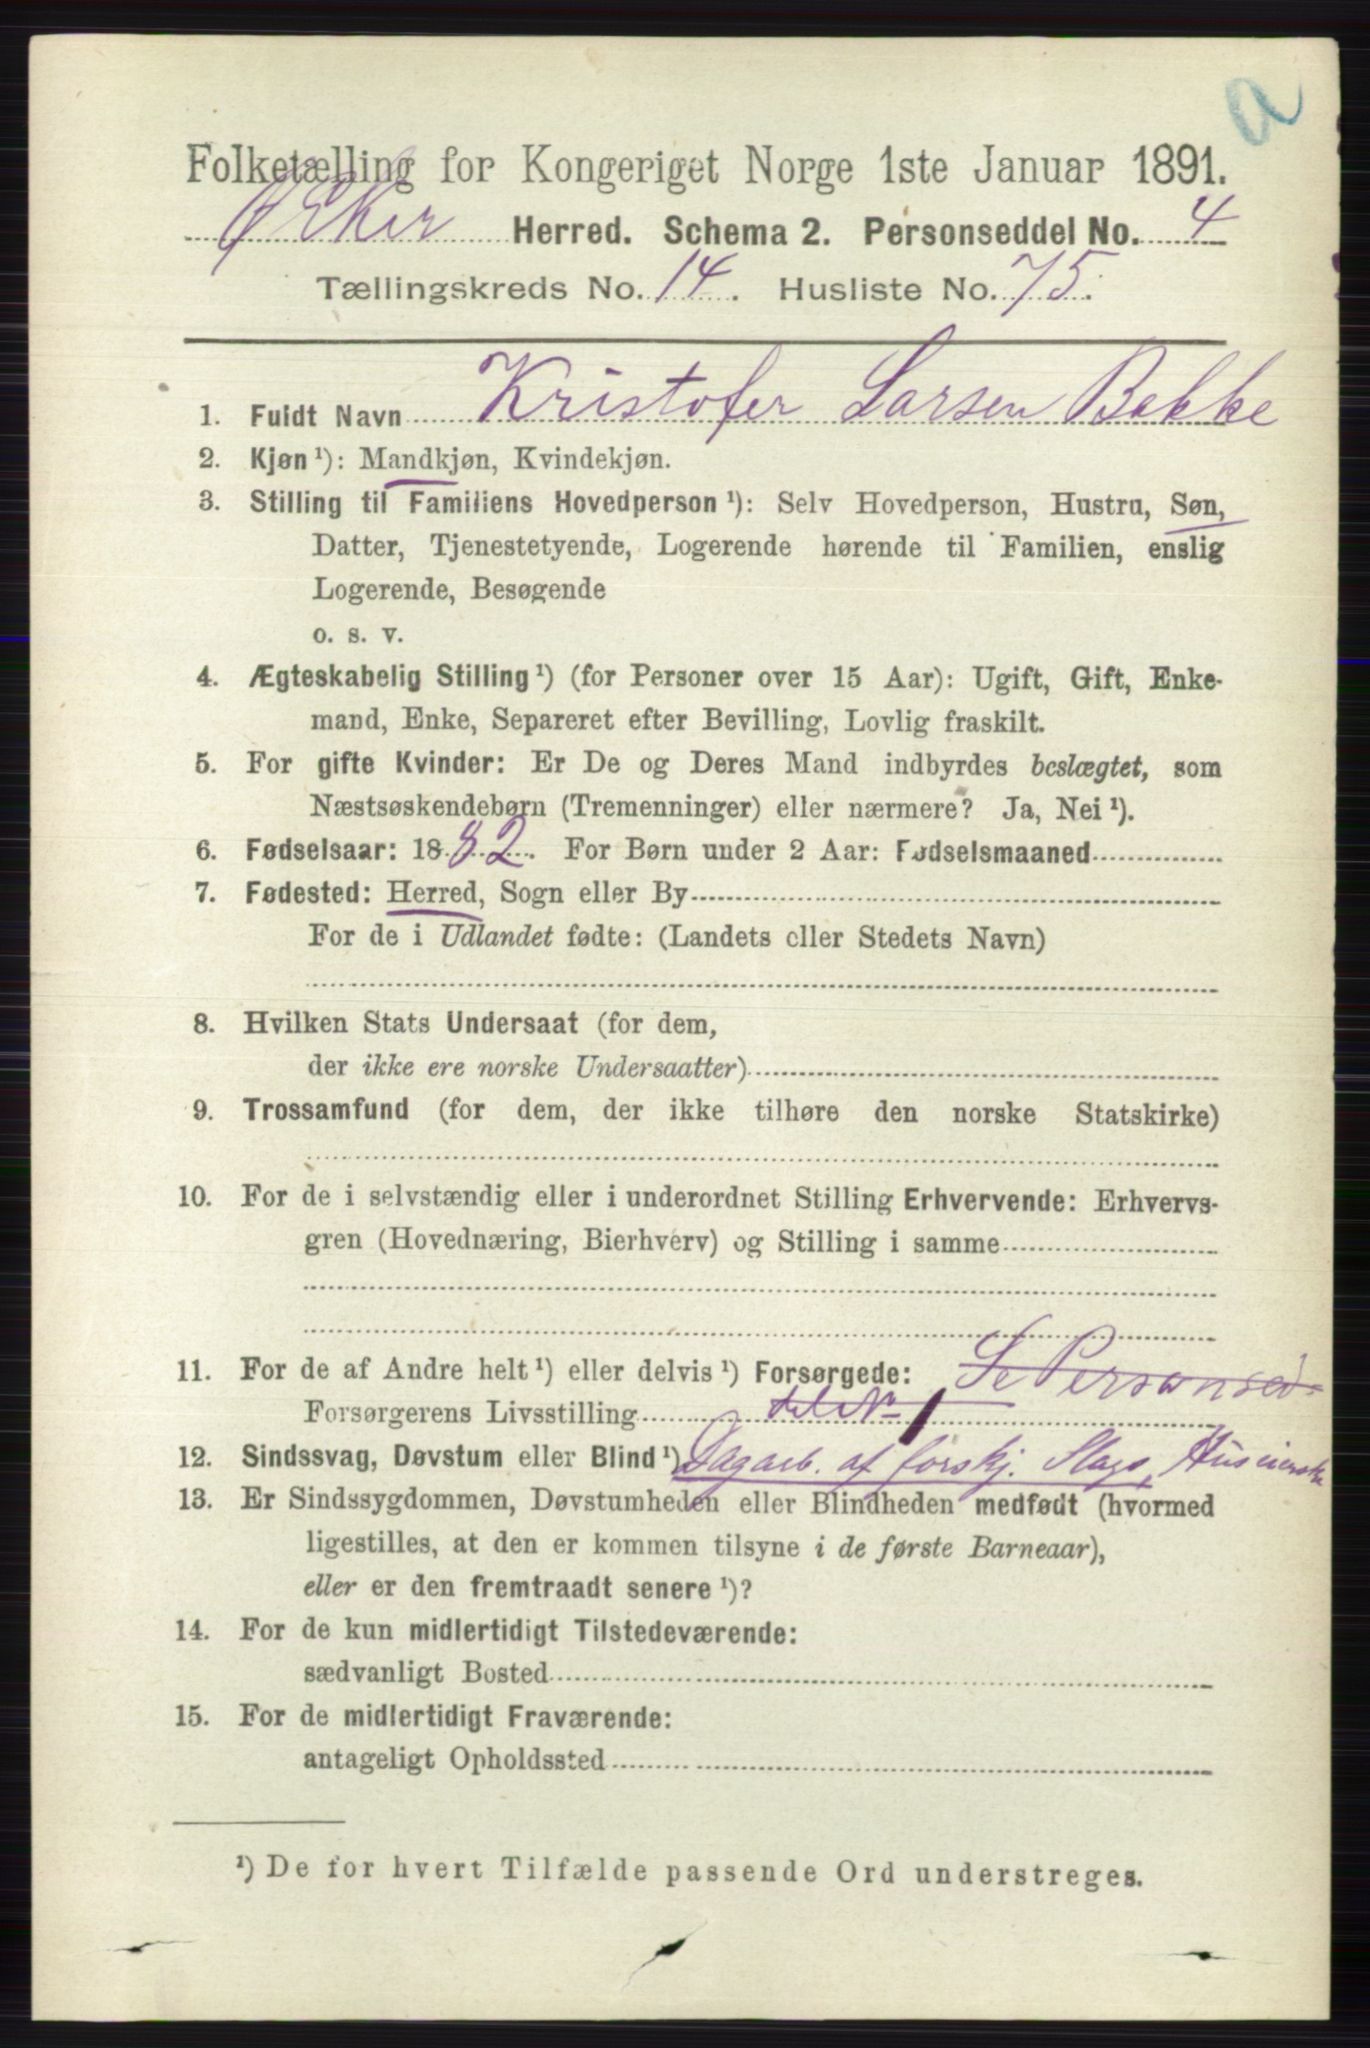 a
Folketælling for Kongeriget Norge 1ste Januar 1891.
Ø Eker Herred. Schema 2. Personseddel No. 4
Tællingskreds No. 14. Husliste No. 75.
1. Fuldt Navn Kristofer Larsen Bakke
2. Kjøn ¹): Mandkjøn, Kvindekjøn.
3. Stilling til Familiens Hovedperson ¹): Selv Hovedperson, Hustru, Søn,
Datter, Tjenestetyende, Logerende hørende til Familien, enslig
Logerende, Besøgende
o. s. v.
4. Ægteskabelig Stilling ¹) (for Personer over 15 Aar): Ugift, Gift, Enke-
mand, Enke, Separeret efter Bevilling, Lovlig fraskilt.
5. For gifte Kvinder: Er De og Deres Mand indbyrdes beslægtet, som
Næstsøskendebørn (Tremenninger) eller nærmere? Ja, Nei ¹).
6. Fødselsaar: 1882. For Børn under 2 Aar: Fødselsmaaned
7. Fødested: Herred, Sogn eller By
For de i Udlandet fødte: (Landets eller Stedets Navn)
8. Hvilken Stats Undersaat (for dem,
der ikke ere norske Undersaatter)
9. Trossamfund (for dem, der ikke tilhøre den norske Statskirke)
10. For de i selvstændig eller i underordnet Stilling Erhvervende: Erhvervs-
gren (Hovednæring, Bierhverv) og Stilling i samme
11. For de af Andre helt ¹) eller delvis ¹) Forsørgede: Se Personsed-
Forsørgerens Livsstilling del No 1
12. Sindssvag, Døvstum eller Blind ¹) Dagarb. af forskj. Slags,
13. Er Sindssygdommen, Døvstumheden eller Blindheden medfødt (hvormed
ligestilles, at den er kommen tilsyne i de første Barneaar),
eller er den fremtraadt senere ¹)?
14. For de kun midlertidigt Tilstedeværende:
sædvanligt Bosted
15. For de midlertidigt Fraværende:
antageligt Opholdssted
¹) De for hvert Tilfælde passende Ord understreges.